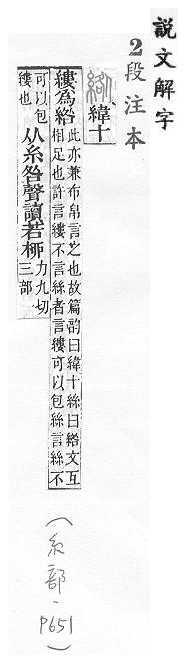 說文解字
2段注本
綹 緯十
縷為綹 此亦兼布帛言之也故篇韵曰緯十絲曰綹文互
相足也許言縷不言絲者言縷可以包絲言絲不
可以包
縷也 从糸咎聲讀若桺 力九切
三部
(糸部, P651)